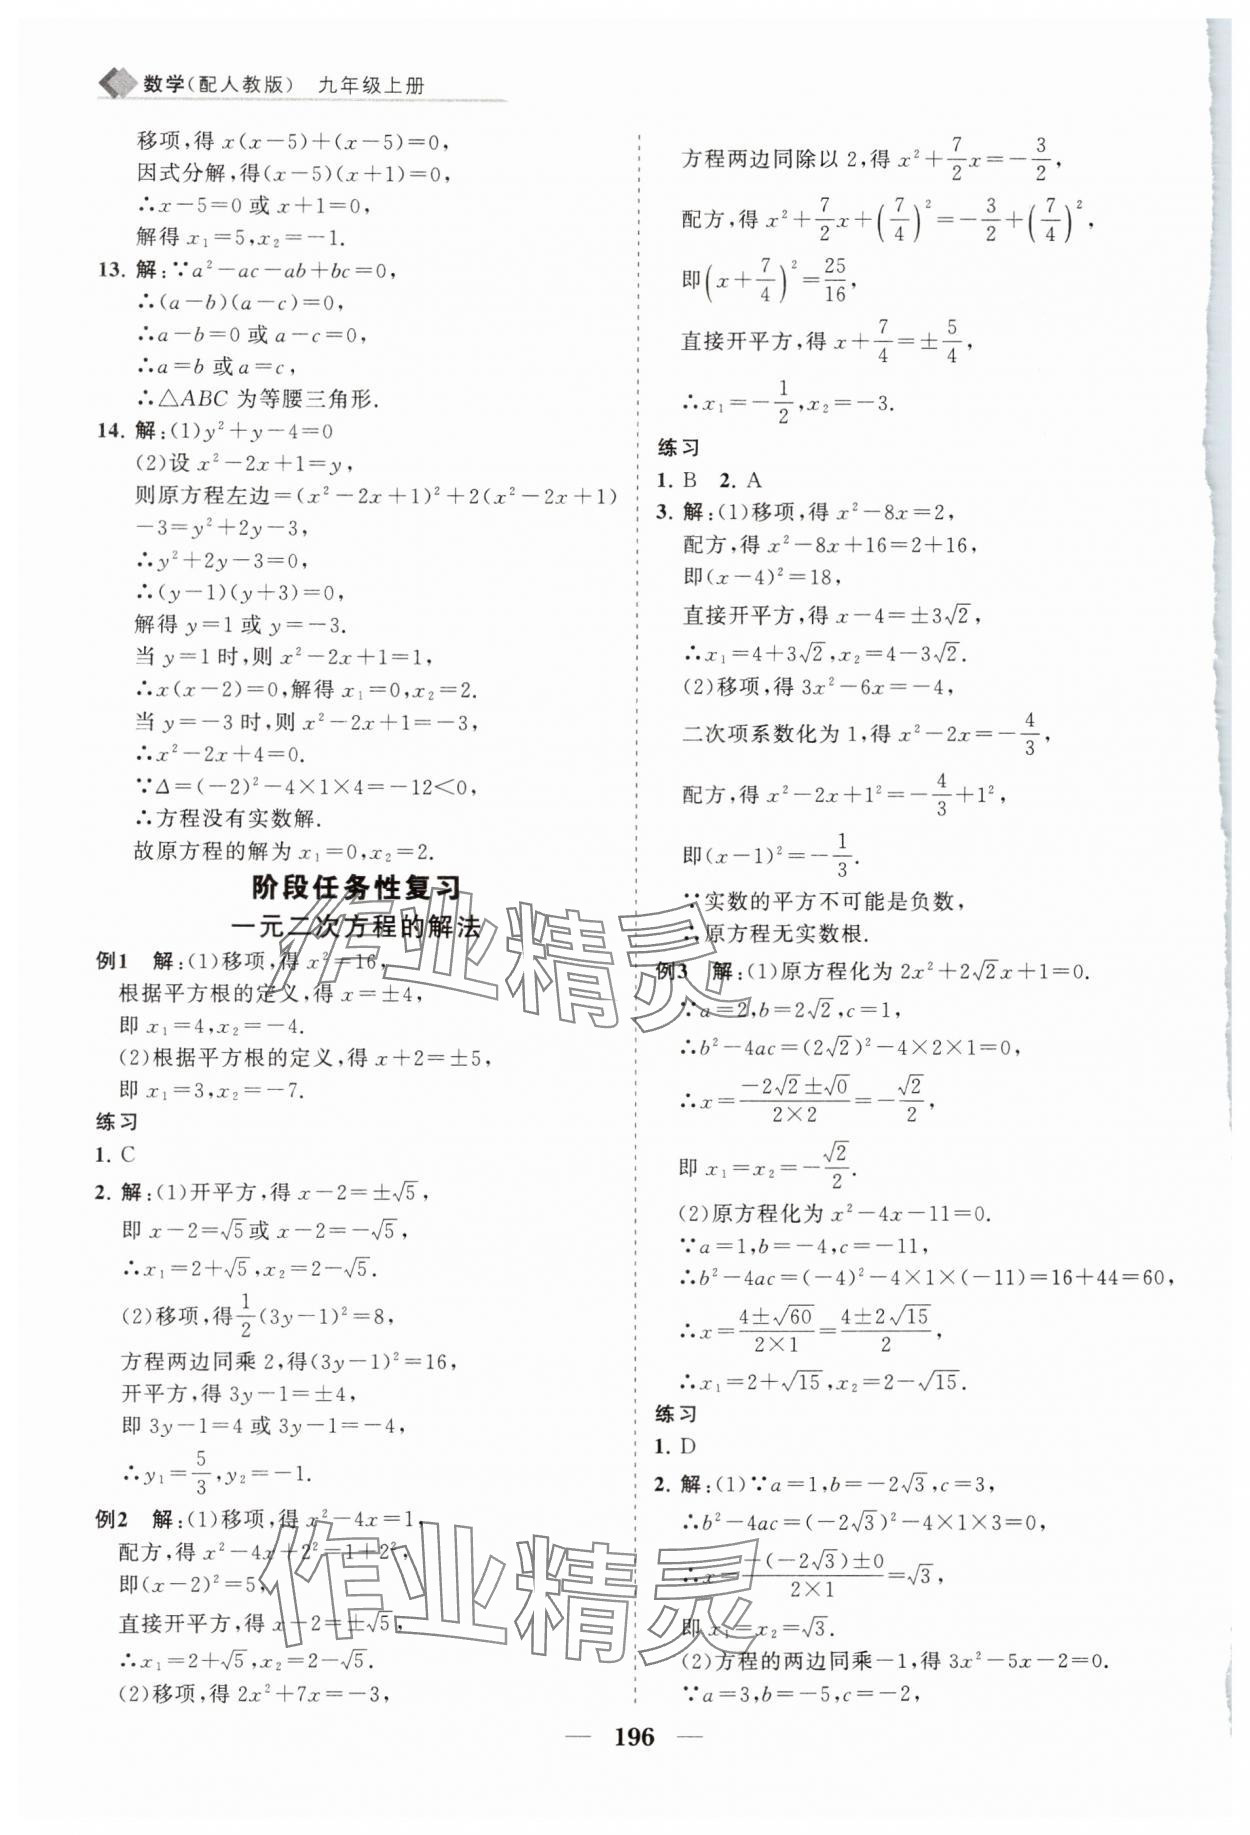 数学(配人教版) 九年级上册
移项,得 x(x-5)+(x-5)=0,
因式分解,得(x-5)(x+1)=0,
∴x-5=0 或 x+1=0,
解得 x₁=5,x₂=-1.
13. 解:∵a²-ac-ab+bc=0,
∴(a-b)(a-c)=0,
∴a-b=0 或 a-c=0,
∴a=b 或 a=c,
∴△ABC 为等腰三角形.
14. 解:(1)y²+y-4=0
(2)设 x²-2x+1=y,
则原方程左边=(x²-2x+1)²+2(x²-2x+1)
-3=y²+2y-3,
∴y²+2y-3=0,
∴(y-1)(y+3)=0,
解得 y=1 或 y=-3.
当 y=1 时,则 x²-2x+1=1,
∴x(x-2)=0,解得 x₁=0,x₂=2.
当 y=-3 时,则 x²-2x+1=-3,
∴x²-2x+4=0.
∵Δ=(-2)²-4×1×4=-12<0,
∴方程没有实数解.
故原方程的解为 x₁=0,x₂=2.
阶段任务性复习
一元二次方程的解法
例1 解:(1)移项,得 x²=16,
根据平方根的定义,得 x=±4,
即 x₁=4,x₂=-4.
(2)根据平方根的定义,得 x+2=±5,
即 x₁=3,x₂=-7.
练习
1. C
2. 解:(1)开平方,得 x-2=±√5,
即 x-2=√5或 x-2=-√5,
∴x₁=2+√5,x₂=2-√5.
(2)移项,得1/2(3y-1)²=8,
方程两边同乘 2,得(3y-1)²=16,
开平方,得 3y-1=±4,
即 3y-1=4 或 3y-1=-4,
∴y₁=5/3,y₂=-1.
例2 解:(1)移项,得 x²-4x=1,
配方,得 x²-4x+2²=1+2²,
即(x-2)²=5,
直接开平方,得 x-2=±√5,
∴x₁=2+√5,x₂=2-√5.
(2)移项,得 2x²+7x=-3,
方程两边同除以 2,得 x²+7/2x=-3/2,
配方,得 x²+7/2x+(7/4)²=-3/2+(7/4)²,
即(x+7/4)²=25/16,
直接开平方,得 x+7/4=±5/4,
∴x₁=-1/2,x₂=-3.
练习
1. B 2. A
3. 解:(1)移项,得 x²-8x=2,
配方,得 x²-8x+16=2+16,
即(x-4)²=18,
直接开平方,得 x-4=±3√2,
∴x₁=4+3√2,x₂=4-3√2.
(2)移项,得 3x²-6x=-4,
二次项系数化为 1,得 x²-2x=-4/3,
配方,得 x²-2x+1²=-4/3+1²,
即(x-1)²=-1/3.
∵实数的平方不可能是负数,
∴原方程无实数根.
例3 解:(1)原方程化为 2x²+2√2x+1=0.
∵a=2,b=2√2,c=1,
∴b²-4ac=(2√2)²-4×2×1=0,
∴x=(-2√2±√0)/(2×2)=-√2/2,
即 x₁=x₂=-√2/2.
(2)原方程化为 x²-4x-11=0.
∵a=1,b=-4,c=-11,
∴b²-4ac=(-4)²-4×1×(-11)=16+44=60,
∴x=(4±√60)/(2×1)=(4±2√15)/2,
∴x₁=2+√15,x₂=2-√15.
练习
1. D
2. 解:(1)∵a=1,b=-2√3,c=3,
∴b²-4ac=(-2√3)²-4×1×3=0,
∴x=(-(-2√3)±0)/(2×1)=√3,
即 x₁=x₂=√3.
(2)方程的两边同乘-1,得 3x²-5x-2=0.
∵a=3,b=-5,c=-2,
— 196 —
作业精灵
作业精灵